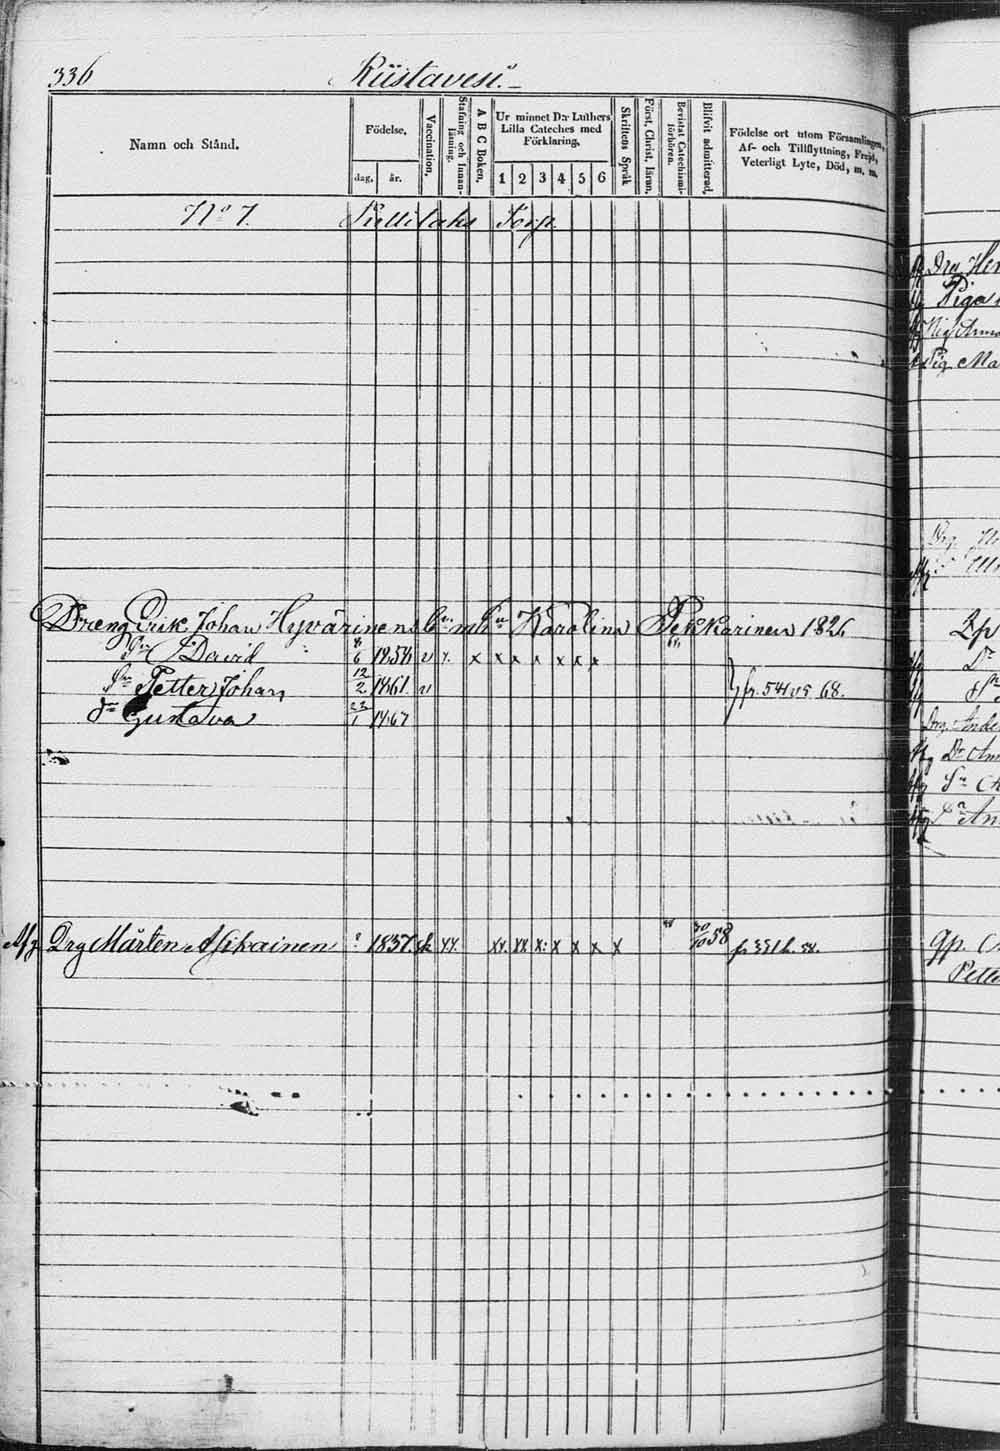 336 Riistavesi.
Namn och Stånd.
Födelse,
dag. år.
Vaccination.
Stafning och Innanläsning.
A B C Boken.
Ur minnet D:r Luthers Lilla Cateches med Förklaring.
1 2 3 4 5 6
Skriftens Språk
Först. Christ. lärn.
Bevistat Catechismiförhören.
Blifvit admitterad.
Födelse ort utom Församlingen,
Af- och Tillflyttning, Frejd,
Veterligt Lyte, Död, m. m.
No 7. Torp.
Dreng Erik Johan Hyvärinens Karolina Pekkarinen 1826
Sn David 8/6 1856 v x x x x x x x x
Sn Petter Johan 12/2 1861 v fr. 541 68.
Dr Gustava 23/1 1867
Afg Drg Mårten Asikainen 1837. xx. xx. xx x: x x x x 30/10 58
Drg Hen
Piga
Pig Anna
Pig Ma
Dr
Drg. Ande
Dr Ann
Sn
Dr An
gp.
Pette